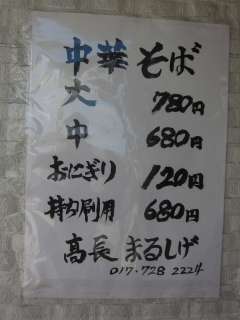 中華そば
大 780円
中 680円
おにぎり 120円
持ち帰用 680円
高長 まるしげ
017-728 2224